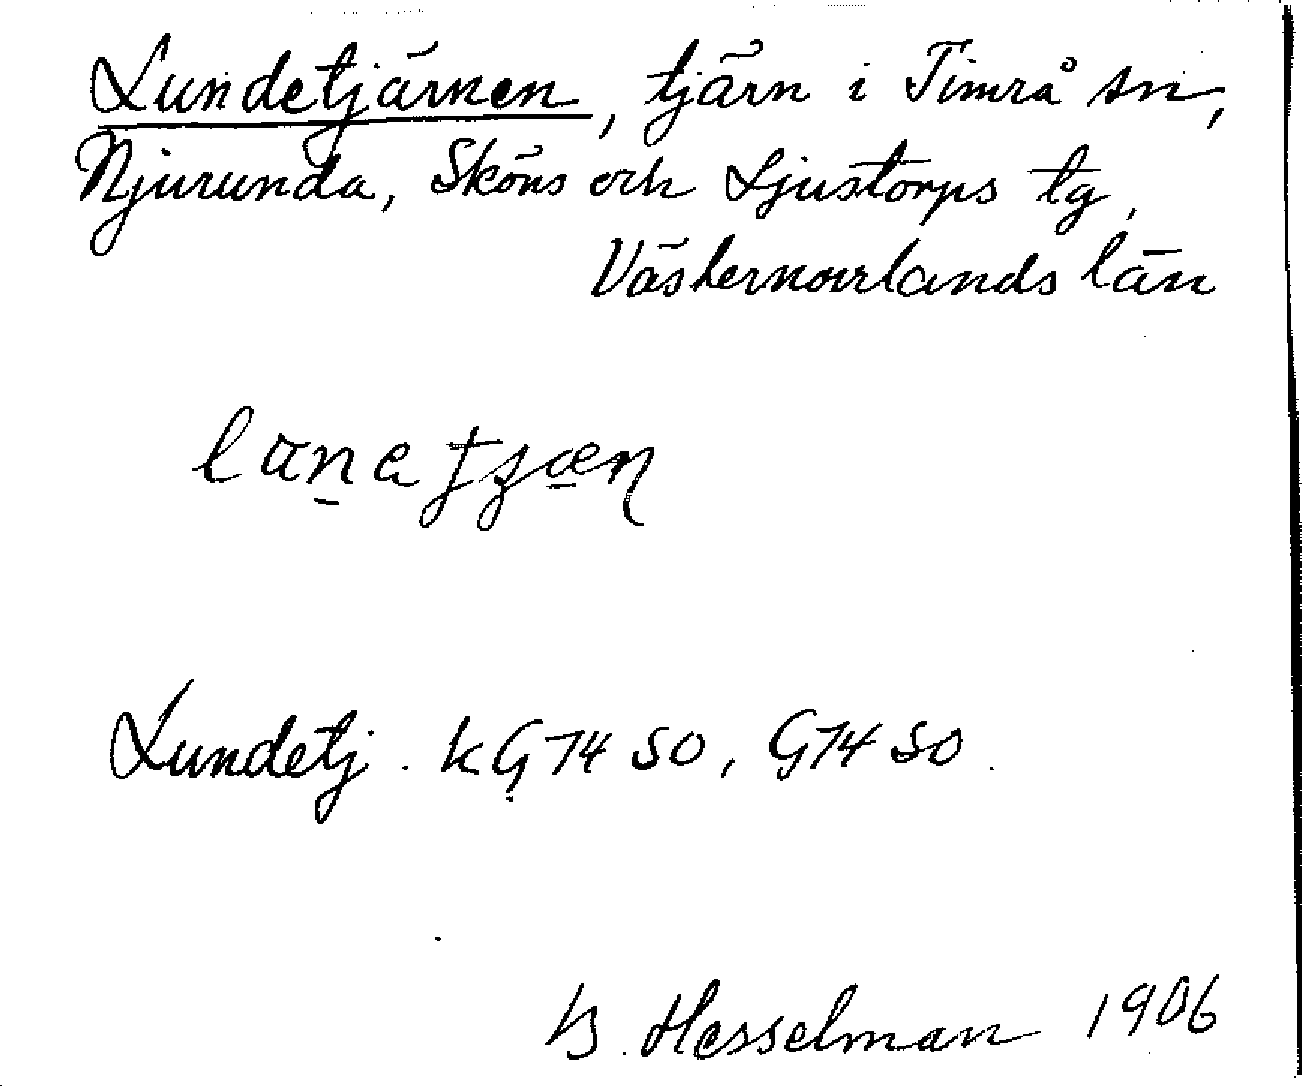 Lundetjärnen, tjärn i Timrå sn,
Njurunda, Sköns och Ljustorps tg,
Västernorrlands län
Lundetj. kG74 SO, G74 SO.
B. Hesselman 1906